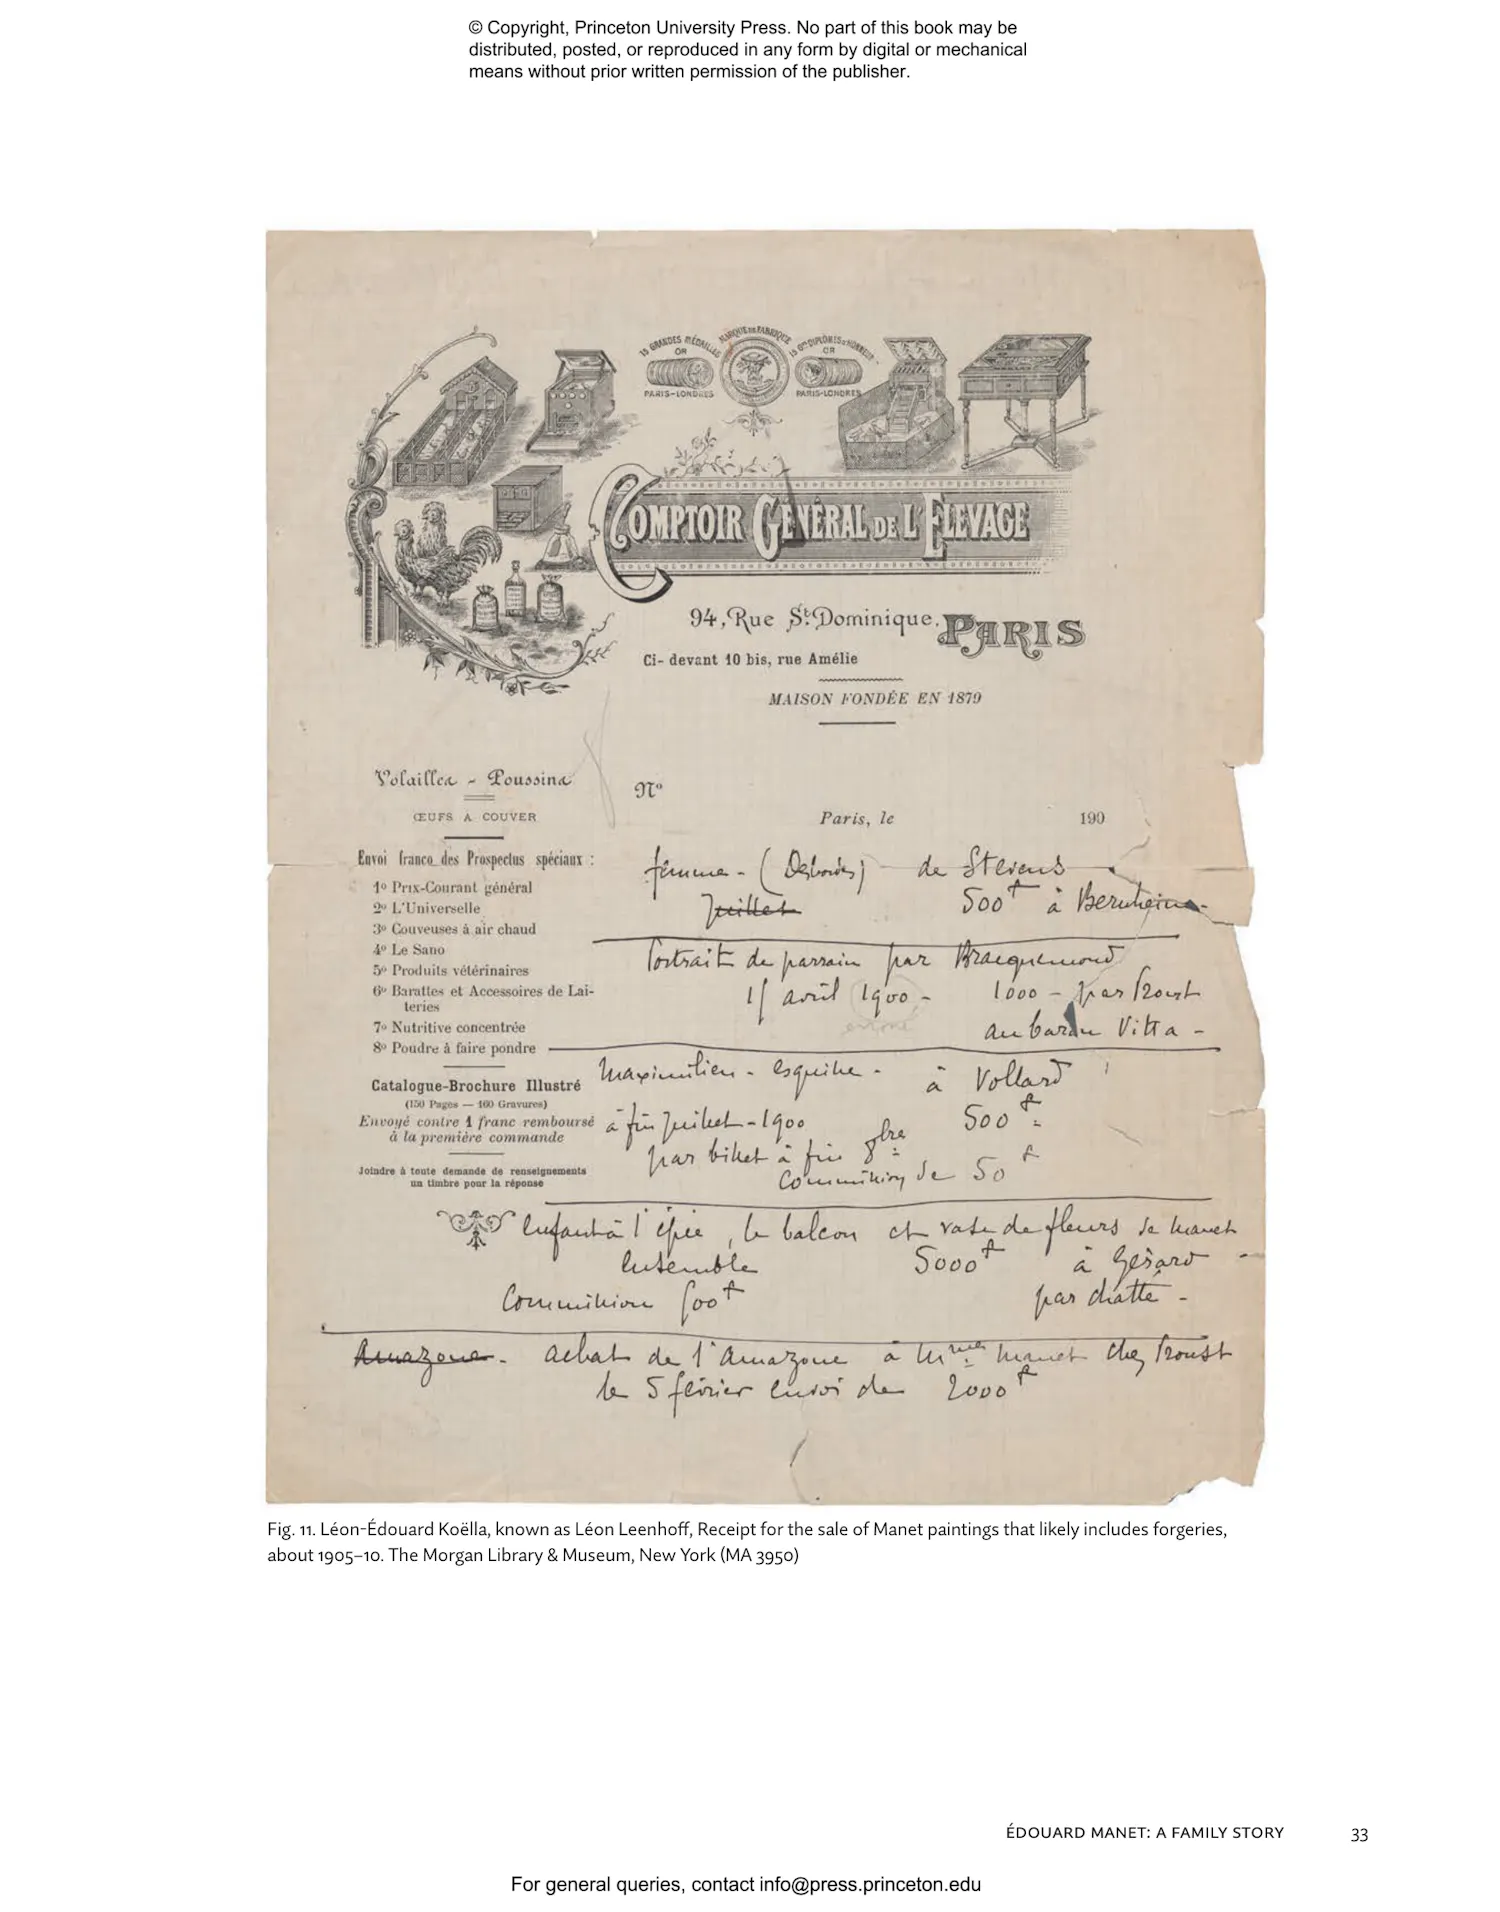 © Copyright, Princeton University Press. No part of this book may be
distributed, posted, or reproduced in any form by digital or mechanical
means without prior written permission of the publisher.
15 GRANDES MÉDAILLES
OR
PARIS-LONDRES
MARQUE DE FABRIQUE
15 Gds DIPLÔMES D'HONNEUR
OR
PARIS-LONDRES
COMPTOIR GÉNÉRAL DE L'ELEVAGE
94, Rue St. Dominique, PARIS
Ci-devant 10 bis, rue Amélie
MAISON FONDÉE EN 1879
Volailles - Poussins
ŒUFS A COUVER
Envoi franco des Prospectus spéciaux :
1º Prix-Courant général
2º L'Universelle
3º Couveuses à air chaud
4º Le Sano
5º Produits vétérinaires
6º Barattes et Accessoires de Lai-
teries
7º Nutritive concentrée
8º Poudre à faire pondre
Catalogue-Brochure Illustré
(150 Pages — 160 Gravures)
Envoyé contre 1 franc remboursé
à la première commande
Joindre à toute demande de renseignements
un timbre pour la réponse
Nº
Paris, le 190
femme - (Desbordes) de Stevens
Juillet 500 f à Bernheim -
Portrait de parrain par Bracquemond
15 avril 1900 - 1000 - par Proust
au baron Vitta -
Maximilien - esquisse - à Vollard
à fin Juillet - 1900 500 f
par billet à fin 8bre
Commission de 50 f
Enfant à l'épée, le balcon et vase de fleurs de Manet
Ensemble 5000 f à Gérard
Commission 500 f par chatte -
Amazone - achat de l'amazone à Mme Manet chez Proust
le 5 février envoi de 2000 f
Fig. 11. Léon-Édouard Koëlla, known as Léon Leenhoff, Receipt for the sale of Manet paintings that likely includes forgeries,
about 1905–10. The Morgan Library & Museum, New York (MA 3950)
ÉDOUARD MANET: A FAMILY STORY 33
For general queries, contact info@press.princeton.edu